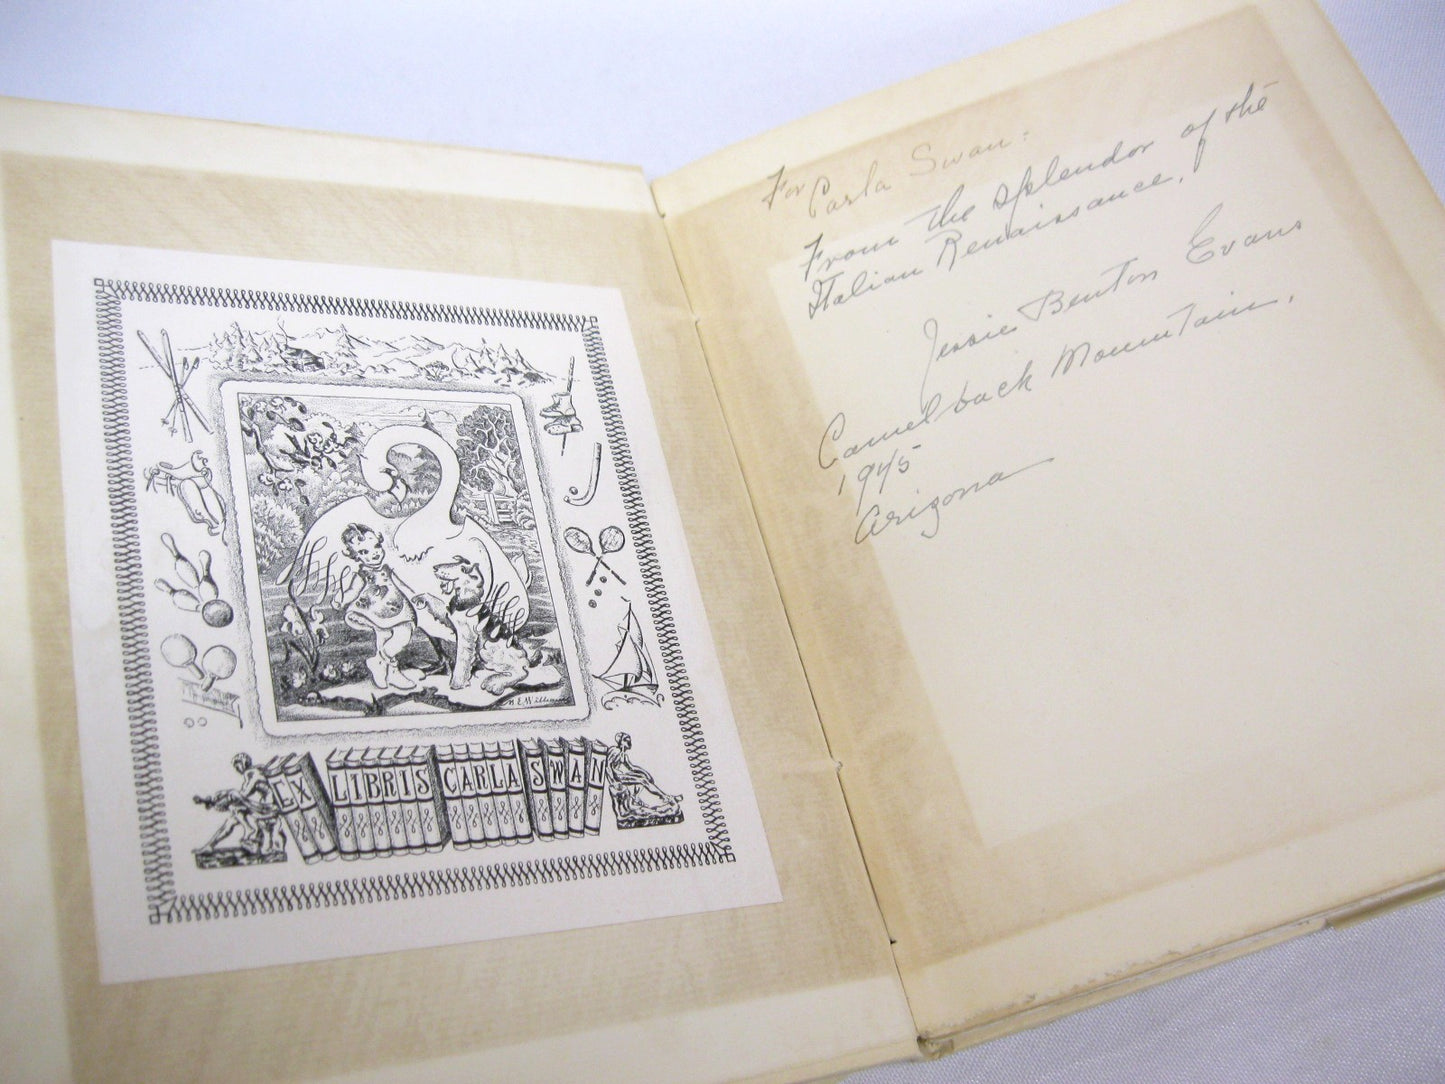 N.E. Willems
EX LIBRIS CARLA SWAN
For Carla Swan:
From the splendor of the
Italian Renaissance,
Jessie Benton Evans
Camelback Mountain,
1945
Arizona